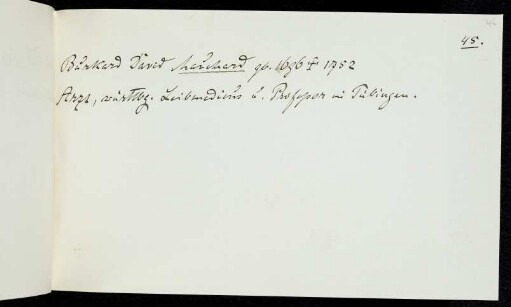 46
45.
Burkard David Mauchard gb. 1696 † 1752
Arzt, württbg. Leibmedicus u. Professor in Tübingen.